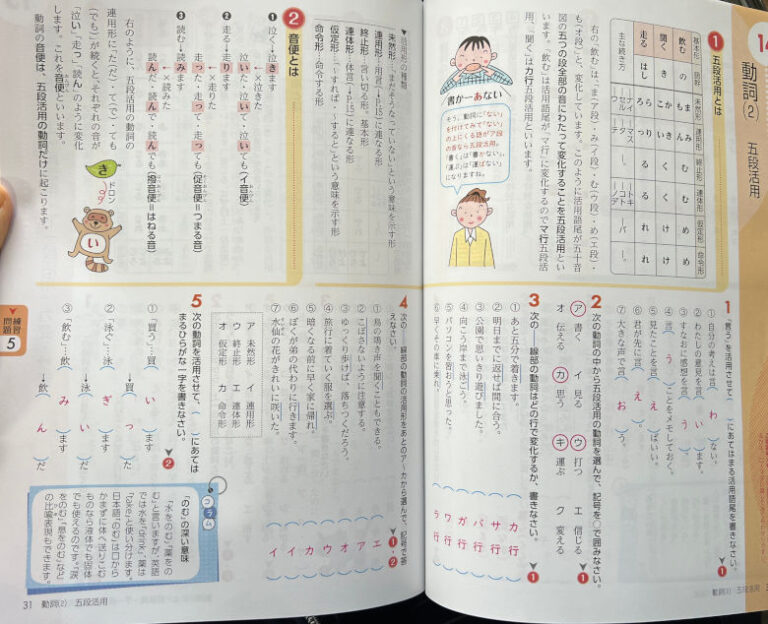 14
動詞(2)
五段活用
1 五段活用とは
基本形 語幹 未然形 連用形 終止形 連体形 仮定形 命令形
飲む の ま も み ん む む め め
聞く き か こ き い く く け け
走る はし ら ろ り っ る る れ れ
主な続き方
右の「飲む」は、ま(ア段)・み(イ段)・む(ウ段)・め(エ段)・
も(オ段)と、変化しています。このように活用語尾が五十音
図の五つの段全部の音にわたって変化することを五段活用とい
います。「飲む」は活用語尾が「マ行」に変化するのでマ行五段活
用、「聞く」はカ行五段活用といいます。
書かーあない
そう、動詞に「ない」
を付けてみて「ない」
の上にくる語がア段
の音なら五段活用。
「書く」は「書かない」、
「運ぶ」は「運ばない」
になりますね。
▼活用形の種類
未然形(まだそうなっていない)という意味を示す形
連用形(用言
連なる形
終止形(言い切る形。基本形
連体形(体言
に連なる形
仮定形(「~すれば・~すると」という意味を示す形
命令形(命令する形
2 音便とは
❶ 泣く→泣きます
←×泣きた
泣いた・泣いて・泣いても(イ音便)
❷ 走る→走ります
←×走りた
走った・走って・走っても(促音便=つまる音)
❸ 読む→読みます
←×読みた
読んだ・読んで・読んでも(撥音便=はねる音)
右のように、五段活用の動詞の
連用形に「た(だ)・て(で)・ても
(でも)」が続くと、それぞれの音が
「泣い」「走っ」「読ん」のように変化
します。これを音便といいます。
動詞の音便は、五段活用の動詞だけに起こります。
き
ドロン
い
1 「言う」を活用させて、( )にあてはまる活用語尾を書きなさい。
❶
① 自分の考えは言( わ )ない。
② わたしの意見を言( い )ます。
③ すなおに感想を言( う )。
④ 言( う )ことをメモしておく。
⑤ 見たことを言( え )ばいい。
⑥ 君が先に言( え )。
⑦ 大きな声で言( お )う。
2 次の動詞の中から五段活用の動詞を選んで、記号を○で囲みなさい。
❶
ア 書く イ 見る ウ 打つ エ 信じる
オ 伝える カ 思う キ 運ぶ ク 変える
3 次の——線部の動詞はどの行で変化するか、書きなさい。
❶
① あと五分で着きます。 ( カ行 )
② 明日までに返せば間に合う。 ( サ行 )
③ 公園で思いきり遊びました。 ( バ行 )
④ 向こう岸まで泳ごう。 ( ガ行 )
⑤ パソコンを習おうと思った。 ( ワ行 )
⑥ 早くその車に乗れ。 ( ラ行 )
4 次の——線部の動詞の活用形をあとのア~カから選んで、記号で答
えなさい。
❶❷
① 鳥の鳴き声を聞くこともできる。 ( エ )
② こぼさないように注意する。 ( ア )
③ ゆっくり歩けば、落ちつくだろう。 ( オ )
④ 旅行に着ていく服を選ぶ。 ( ウ )
⑤ 暗くなる前に早く家に帰れ。 ( カ )
⑥ ぼくが弟の代わりに行きます。 ( イ )
⑦ 水仙の花がきれいに咲いた。 ( イ )
ア 未然形 イ 連用形
ウ 終止形 エ 連体形
オ 仮定形 カ 命令形
5 次の動詞を活用させて、( )にあては
まるひらがな一字を書きなさい。
❷
① 「買う」…買( い )ます
→買( っ )た
② 「泳ぐ」…泳( ぎ )ます
→泳( い )だ
③ 「飲む」…飲( み )ます
→飲( ん )だ
コラム
「のむ」の深い意味
「水をのむ」、「薬をの
む」と言いますが、英語
では水を「drink」、薬は
「take」と使い分けます。
日本語の「のむ」は口から
かまずに体へ送りこむ
ものなら液体でも固体
でも使えるのです。「涙
をのむ」、「息をのむ」など
の比喩表現もできます。
練習問題 5
31 動詞(2) 五段活用
動詞(2) 五段活用